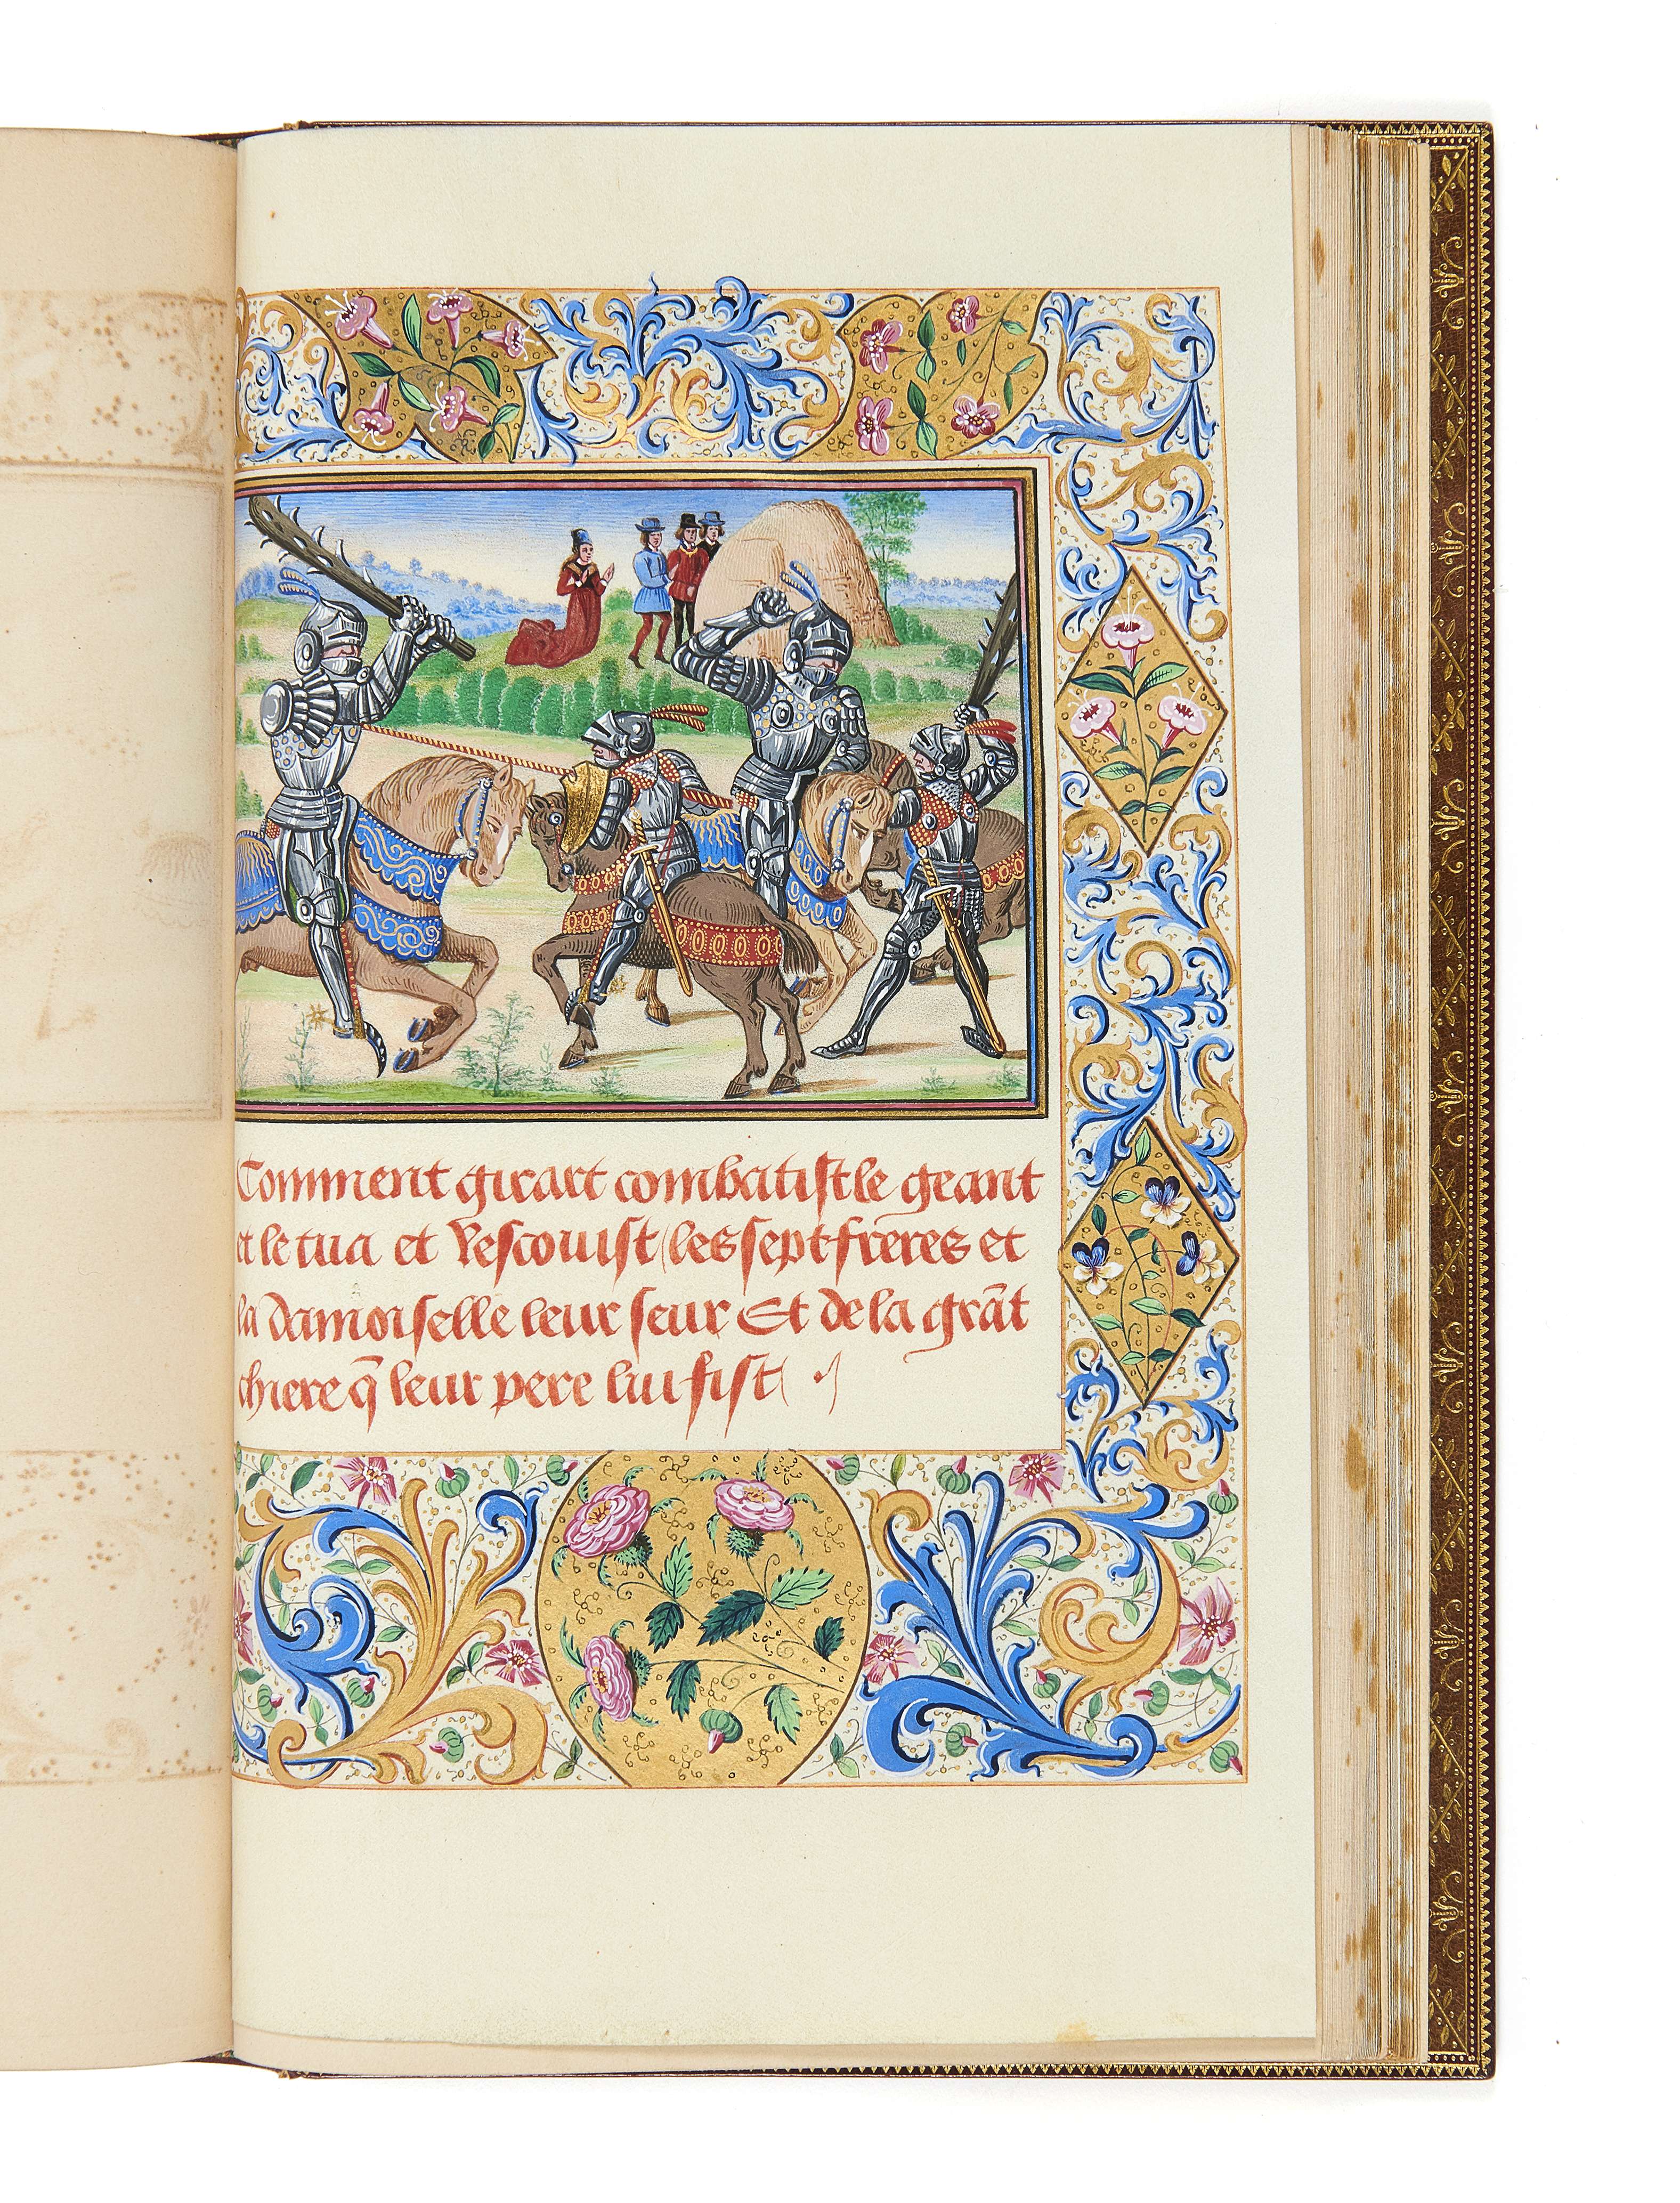 Comment girart combatist le geant
et le tua et rescouist les sept freres et
la damoiselle leur seur Et de la grāt
chiere q̄ leur pere lui fist